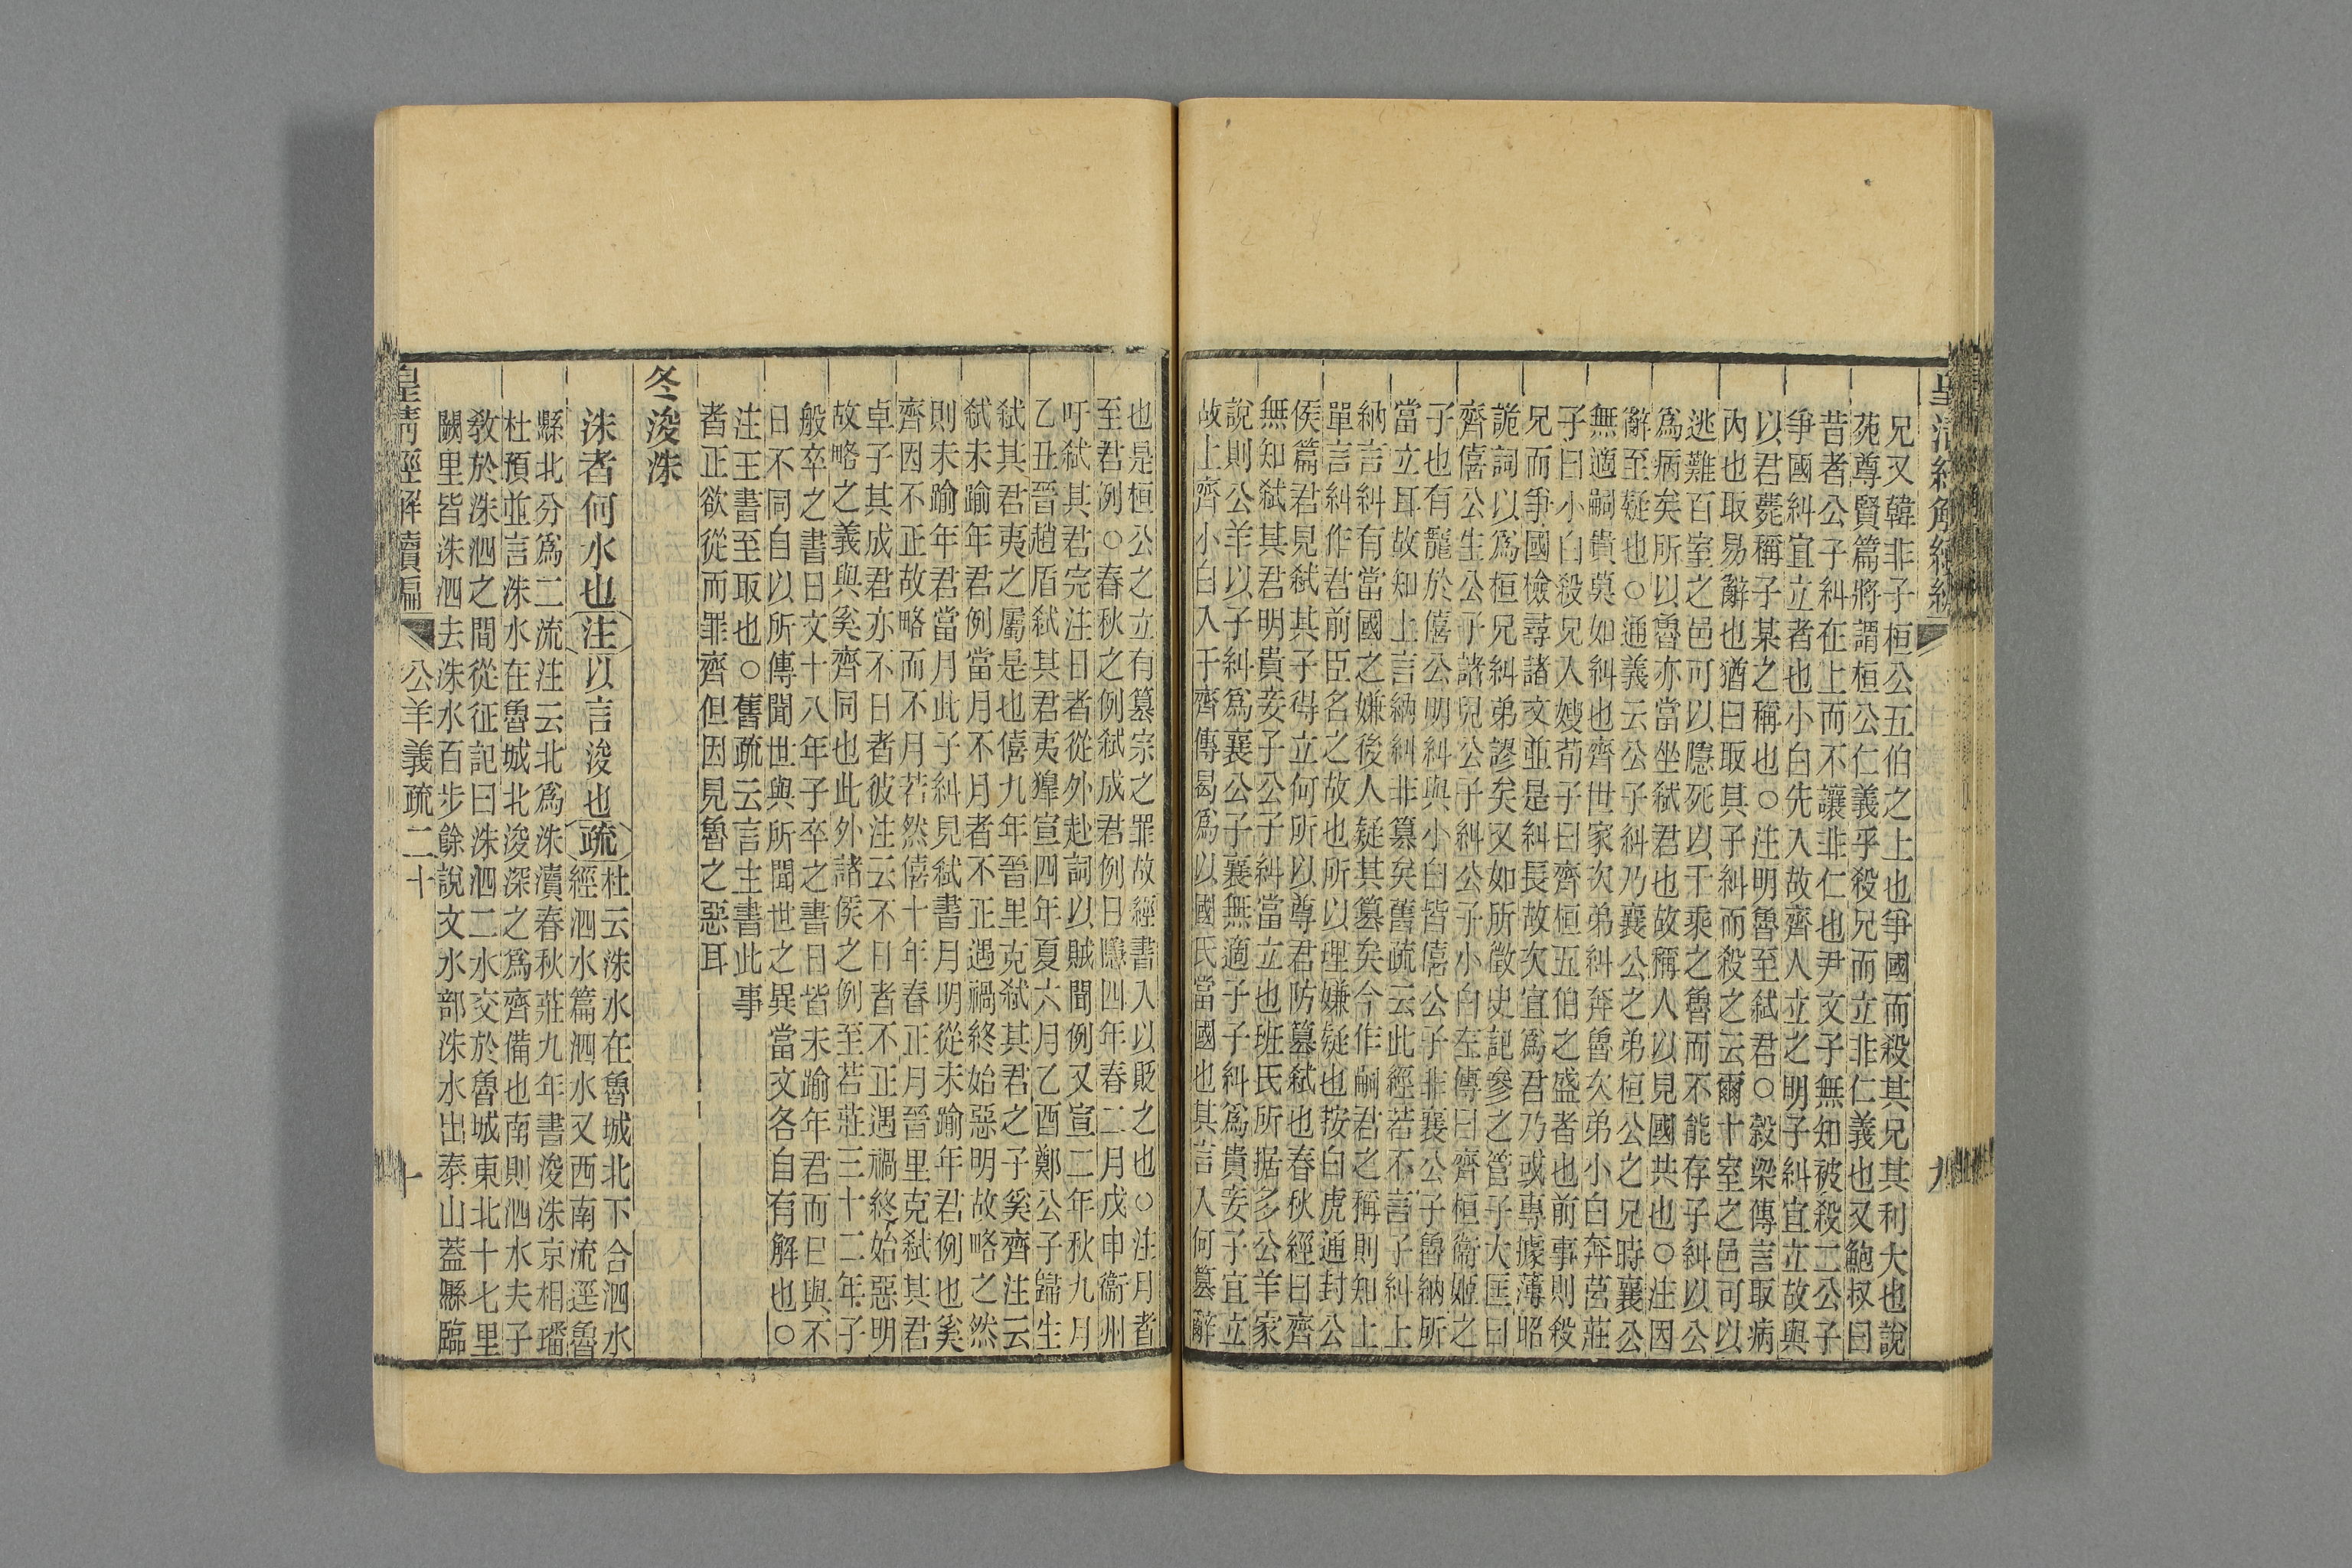 兄又韓非子桓公五伯之上也爭國而殺其兄其利大也說
苑尊賢篇將謂桓公仁義乎殺兄而立非仁義也又鮑叔曰
昔者公子糾在上而不讓非仁也尹文子無知被殺二公子
爭國糾宜立者也小白先入故齊人立之明子糾宜立故與
以君薨稱子某之稱也○注明魯至弒君○穀梁傳言取病
內也取易辭也猶曰取其子糾而殺之云爾十室之邑可以
逃難百室之邑可以隱死以千乘之魯而不能存子糾以公
爲病矣所以魯亦當坐弒君也故稱人以見國共也○注因
辭至疑也○通義云公子糾乃襄公之弟桓公之兄時襄公
無適嗣貴莫如糾也齊世家次弟糾奔魯次弟小白奔莒莊
子曰小白殺兄入嫂荀子曰齊桓五伯之盛者也前事則殺
兄而爭國檢尋諸文並是糾長故次宜爲君乃或專據薄昭
詭詞以爲桓兄糾弟謬矣又如所徵史記參之管子大匡曰
齊僖公生公子諸兒公子糾公子小白左傳曰齊桓衞姬之
子也有寵於僖公明糾與小白皆僖公子非襄公子魯納所
當立耳故知上言納糾非篡矣舊疏云此經若不言子糾上
納言糾有當國之嫌後人疑其篡矣今作嗣君之稱則知上
單言糾作君前臣名之故也所以理嫌疑也按白虎通封公
侯篇君見弒其子得立何所以尊君防篡弒也春秋經曰齊
無知弒其君明貴妾子公子糾當立也班氏所据多公羊家
說則公羊以子糾爲襄公子襄無適子子糾爲貴妾子宜立
故上齊小白入于齊傳曷爲以國氏當國也其言入何篡辭
皇清經解續編
九
也是桓公之立有篡宗之罪故經書入以貶之也○注月者
至君例○春秋之例弒成君例日隱四年春二月戊申衞州
吁弒其君完注日者從外赴詞以賊聞例又宣二年秋九月
乙丑晉趙盾弒其君夷獋宣四年夏六月乙酉鄭公子歸生
弒其君夷之屬是也僖九年晉里克弒其君之子奚齊注云
弒未踰年君例當月不月者不正遇禍終始惡明故略之然
則未踰年君當月此子糾見弒書月明從未踰年君例也奚
齊因不正故略而不月若然僖十年春正月晉里克弒其君
卓子其成君亦不日者彼注云不日者不正遇禍終始惡明
故略之義與奚齊同也此外諸侯之例至若莊三十二年子
般卒之書日文十八年子卒之書日皆未踰年君而日與不
日不同自以所傳聞世與所聞世之異當文各自有解也○
注王書至取也○舊疏云言主書此事
者正欲從而罪齊但因見魯之惡耳
冬浚洙
洙者何水也注以言浚也疏杜云洙水在魯城北下合泗水
經泗水篇泗水又西南流逕魯
縣北分爲二流注云北爲洙瀆春秋莊九年書浚洙京相璠
杜預並言洙水在魯城北浚深之爲齊備也南則泗水夫子
敎於洙泗之閒從征記曰洙泗二水交於魯城東北十七里
闕里皆洙泗去洙水百步餘說文水部洙水出泰山蓋縣臨
皇清經解續編
公羊義疏二十
十